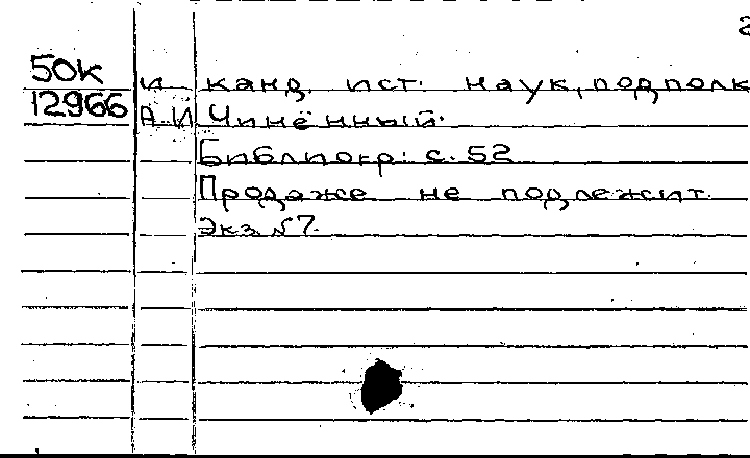 50к и канд. ист. наук, подполк
12966 А.И Чинённый.
Библиогр: с. 52
Продаже не подлежит.
Экз. №7.